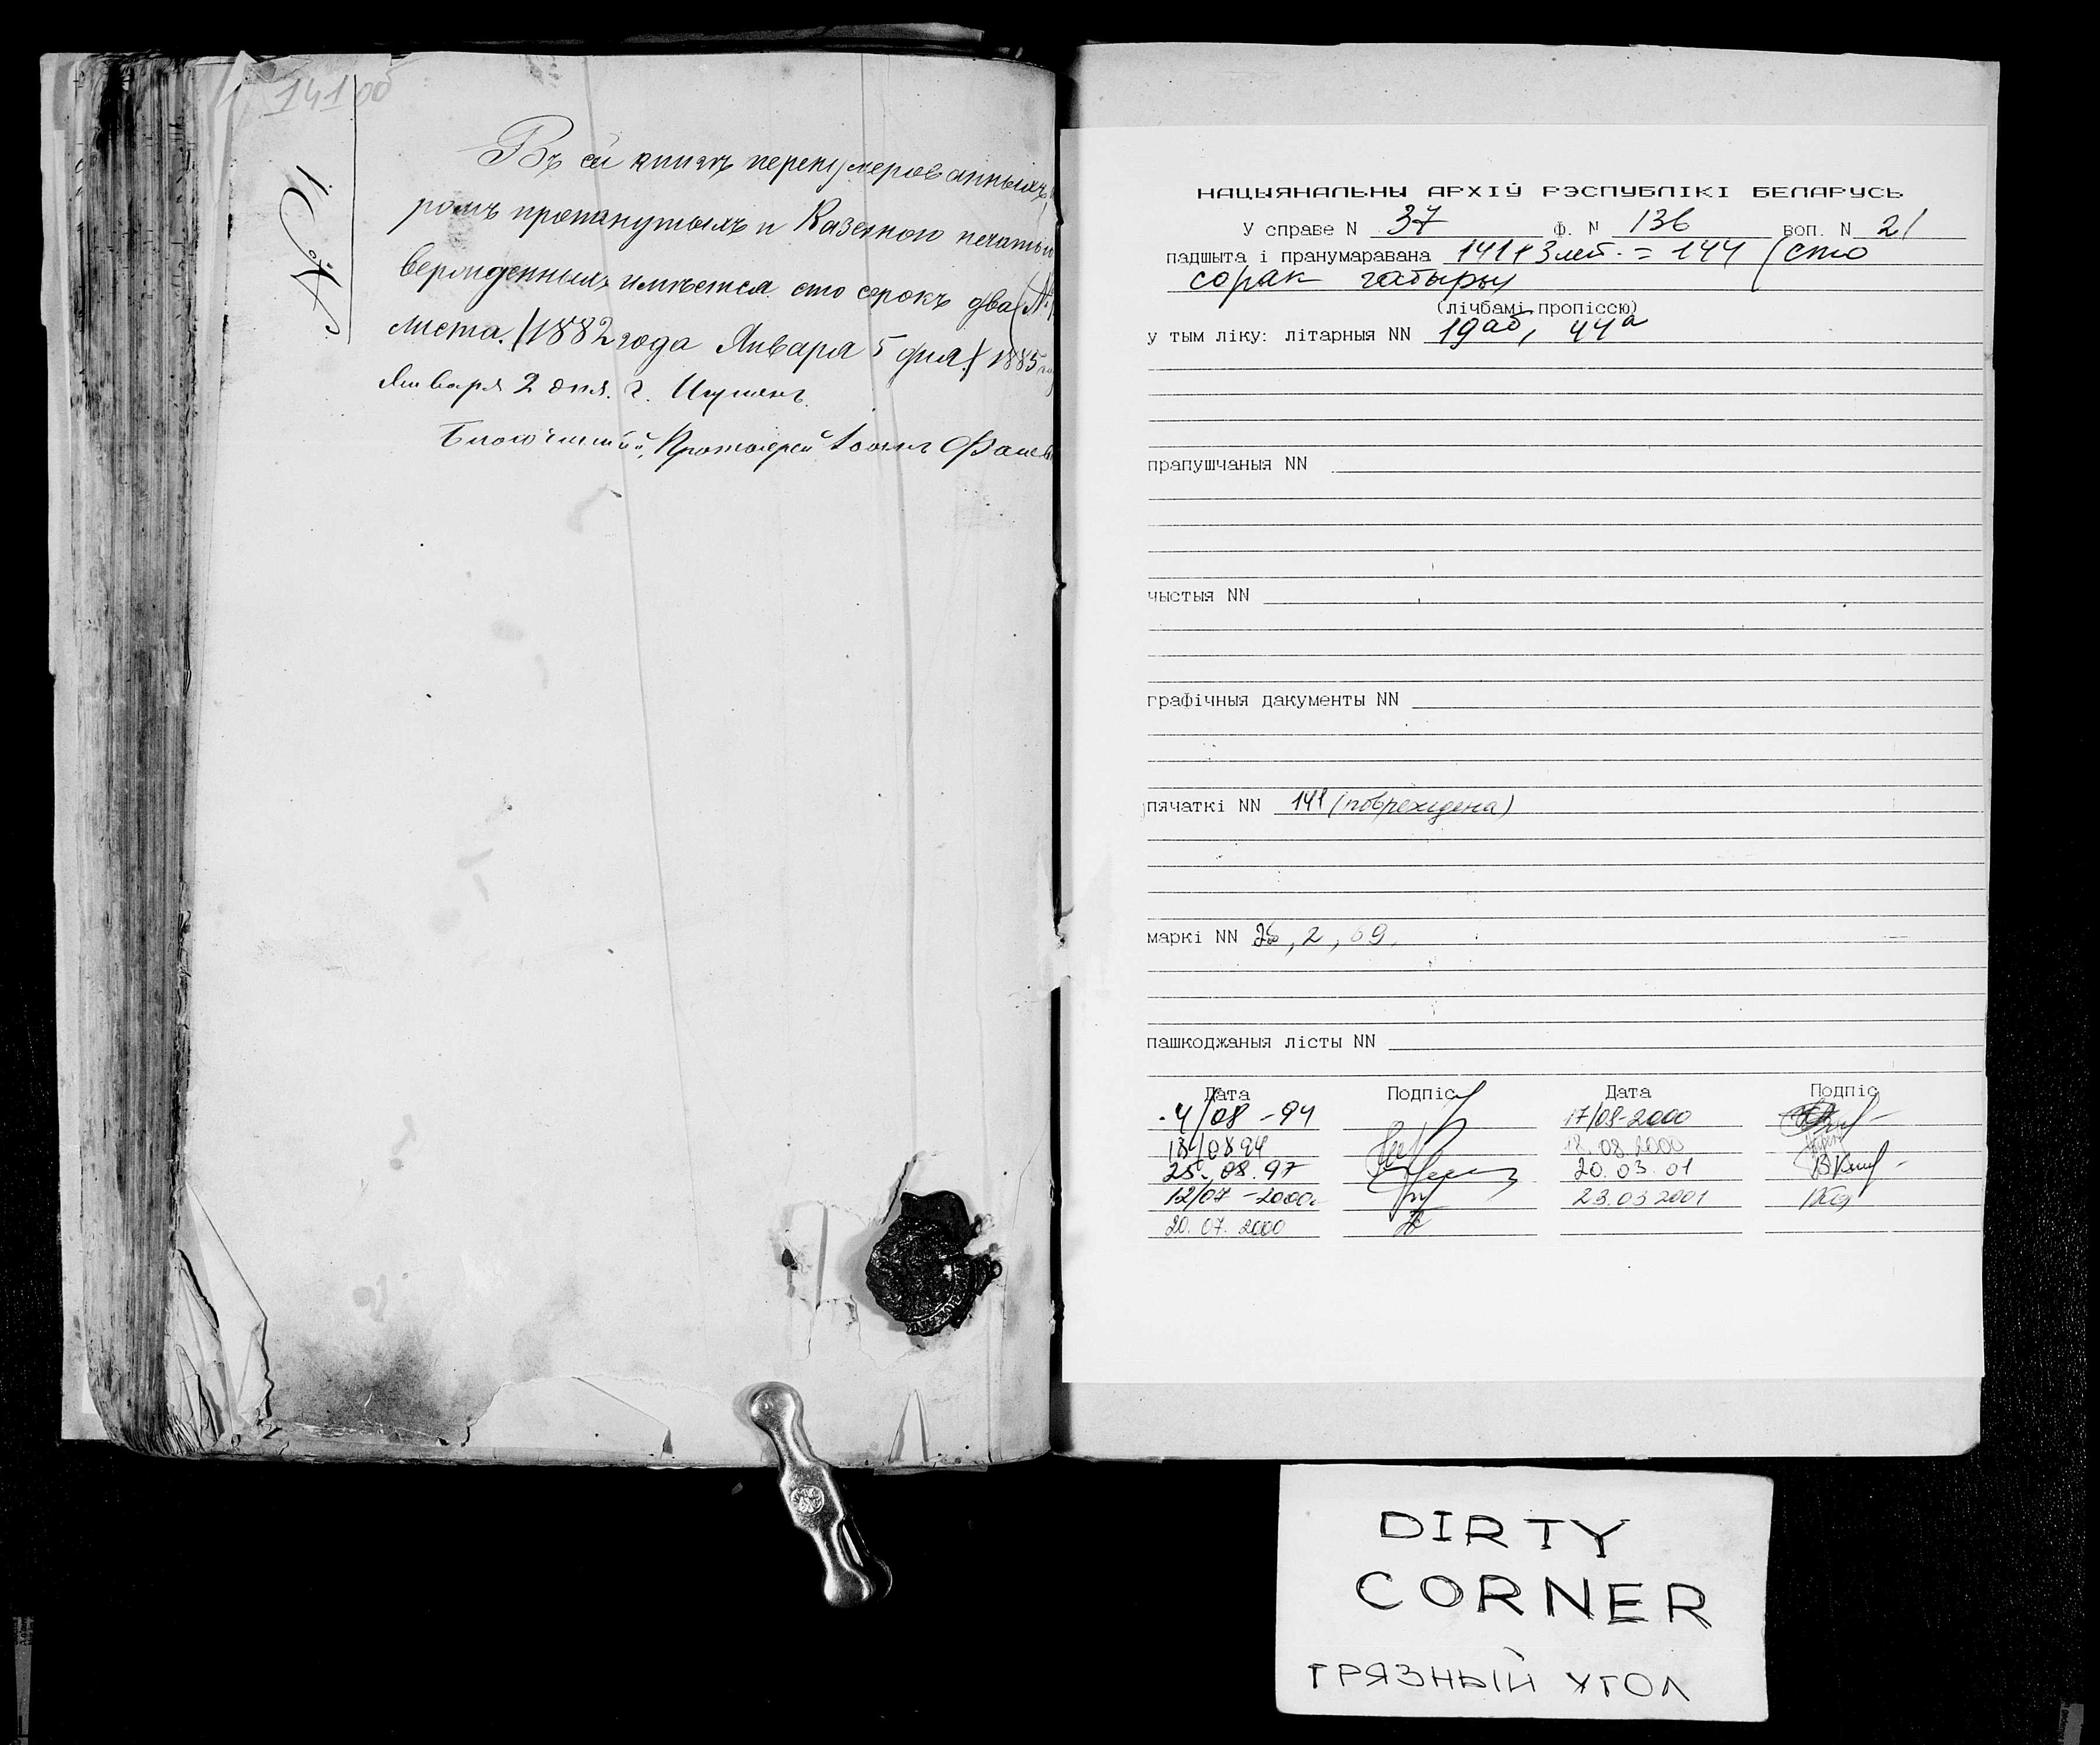 141об
№ 1.
Въ сей книгѣ перенумерованныхъ
ромъ протянутыхъ и Казенною печатью
вержденныхъ имѣется сто сорокъ два
листа. 1882 года Января 5 дня. 1885
Января 2 дня. г. Игумень.
Благочинный, Протоіерей Іоаннъ
НАЦЫЯНАЛЬНЫ АРХІЎ РЭСПУБЛІКІ БЕЛАРУСЬ
У справе N 37 ф. N 136 воп. N 21
падшыта і пранумаравана 141+3лет. = 144 (сто
сорак чатыры
(лічбамі, пропіссю)
у тым ліку: літарныя NN 19аб, 44а
прапушчаныя NN
чыстыя NN
графічныя дакументы NN
пячаткі NN 141 (повреждена)
маркі NN 2, 69.
пашкоджаныя лісты NN
Дата Подпіс Дата Подпіс
4/08-94 17/08-2000
18/08 94 18.08.2000
25.08.97 20.03.01
12/07-2000г 23.03 2001
20.07.2000
DIRTY
CORNER
ГРЯЗНЫЙ УГОЛ